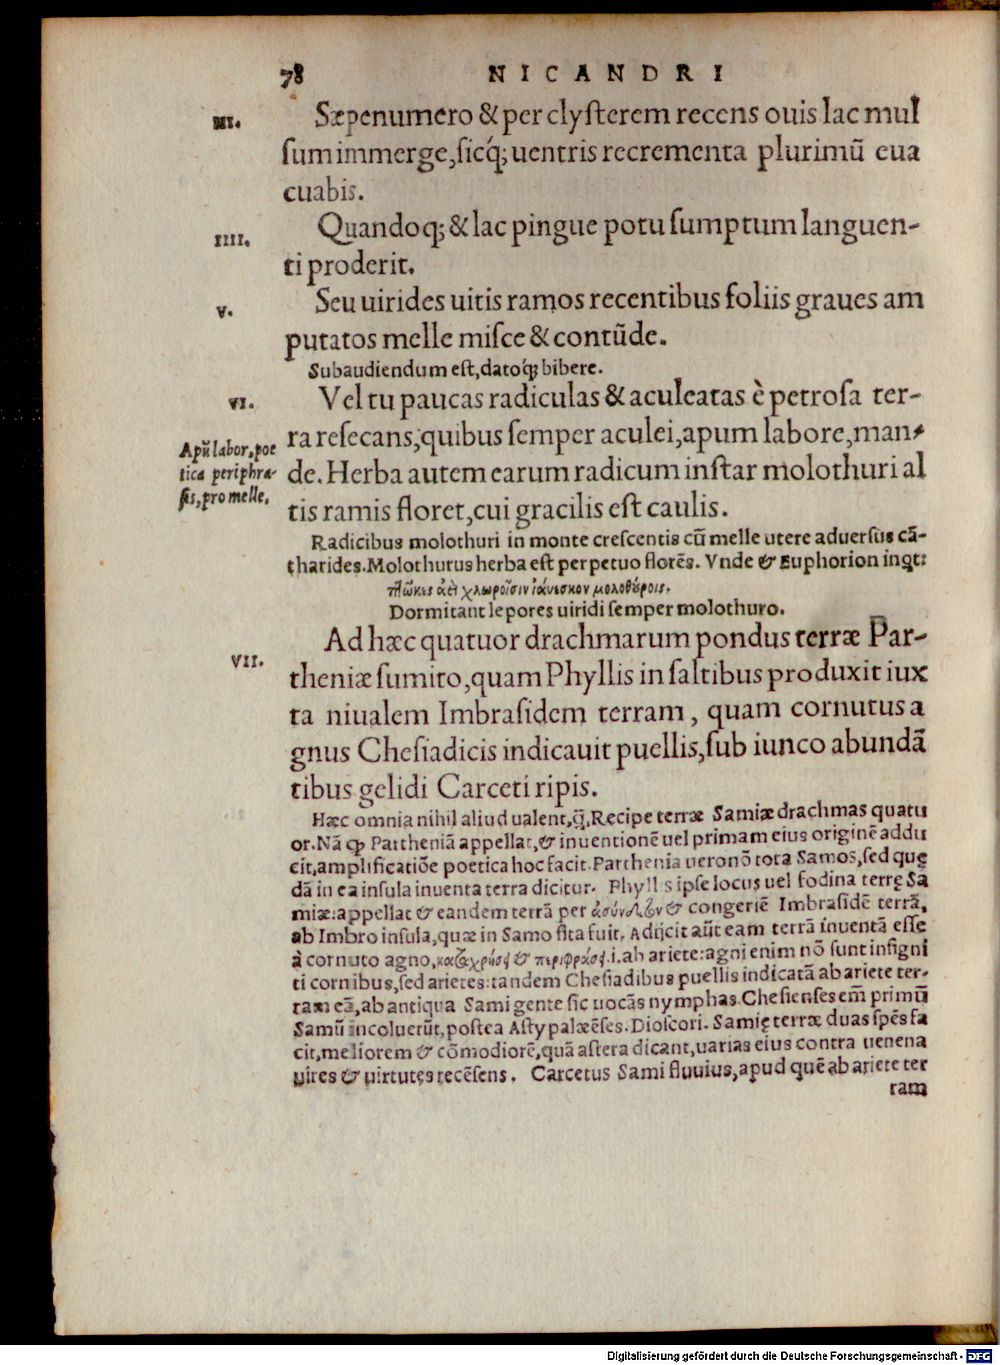 78 NICANDRI
III.
Sæpenumero & per clyſterem recens ouis lac mul
ſum immerge, ſicq́; uentris recrementa plurimũ eua
cuabis.
IIII.
Quandoq; & lac pingue potu ſumptum languen-
ti proderit.
V.
Seu uirides uitis ramos recentibus foliis graues am
putatos melle miſce & contũde.
Subaudiendum eſt, datoq́; bibere.
VI.
Vel tu paucas radiculas & aculeatas è petroſa ter-
Apũ labor, poe
tica periphra-
ſis, pro melle.
ra reſecans, quibus ſemper aculei, apum labore, man-
de. Herba autem earum radicum inſtar molothuri al
tis ramis floret, cui gracilis eſt caulis.
Radicibus molothuri in monte creſcentis cũ melle utere aduerſus cã-
tharides. Molothurus herba eſt perpetuo florẽs. Vnde & Euphorion inqt:
πλῶκες ἀεὶ χλωροῖσιν ἰάνεσκον μολοθύροις.
Dormitant lepores uiridi ſemper molothuro.
VII.
Ad hæc quatuor drachmarum pondus terræ Par-
theniæ ſumito, quam Phyllis in ſaltibus produxit iux
ta niualem Imbraſidem terram, quam cornutus a
gnus Cheſiadicis indicauit puellis, ſub iunco abundã
tibus gelidi Carceti ripis.
Hæc omnia nihil aliud ualent, q̃, Recipe terræ Samiæ drachmas quatu
or. Nã ꝙ Partheniã appellat, & inuentionẽ uel primam eius originẽ addu
cit, amplificatiõe poetica hoc facit. Parthenia uero nõ tota Samos, ſed quę
dã in ea inſula inuenta terra dicitur. Phyllis ipſe locus uel fodina terrę Sa
miæ: appellat & eandem terrã per & congeriẽ Imbraſidẽ terrã,
ab Imbro inſula, quæ in Samo ſita fuit. Adijcit aũt eam terrã inuentã eſſe
à cornuto agno, & .i. ab ariete: agni enim nõ ſunt inſigni
ti cornibus, ſed arietes: tandem Cheſiadibus puellis indicatã ab ariete ter-
ram eã, ab antiqua Sami gente ſic uocãs nymphas. Cheſienſes em̃ primũ
Samũ incoluerũt, poſtea Aſtypalæẽſes. Dioſcori. Samię terræ duas ſpẽs fa
cit, meliorem & cõmodiorẽ, quã aſtera dicant, uarias eius contra uenena
uires & uirtutes recẽſens. Carcetus Sami fluuius, apud quẽ ab ariete ter
ram
Digitalisierung gefördert durch die Deutsche Forschungsgemeinschaft - DFG